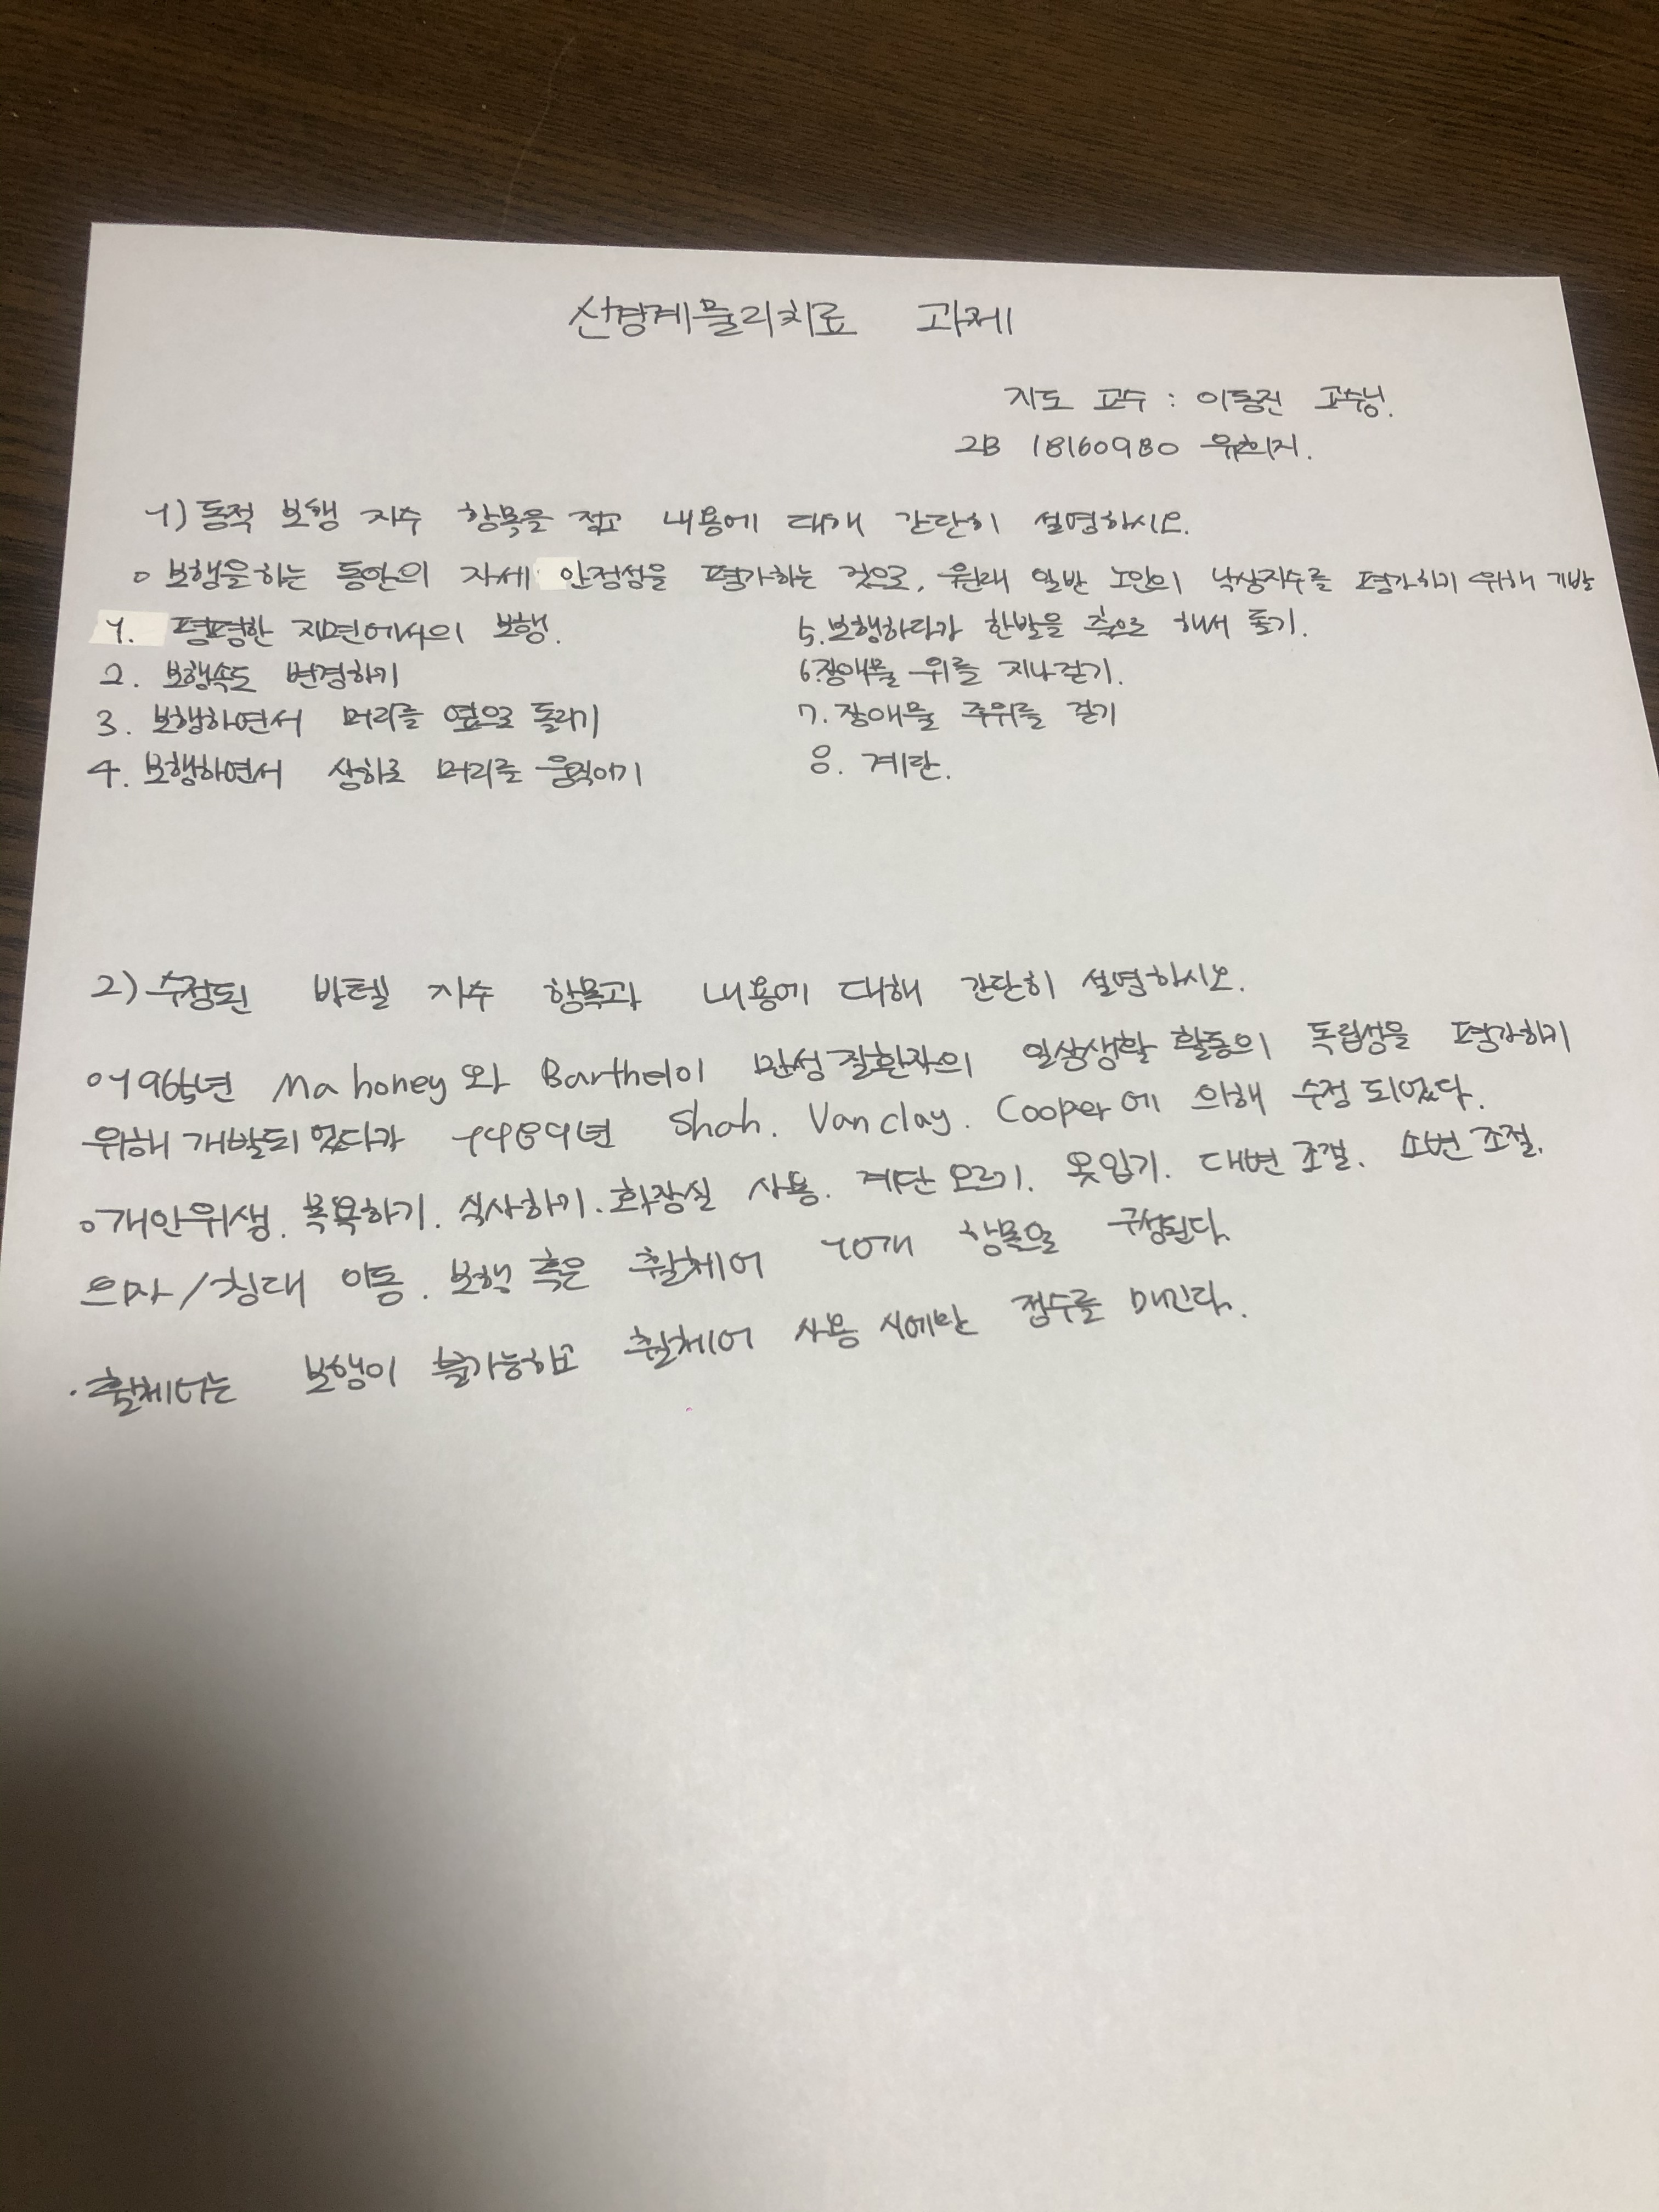 신경계물리치료 과제
지도 교수 : 이동진 교수님.
2B 18160980 유희지.
1) 동적 보행 지수 항목을 적고 내용에 대해 간단히 설명하시오.
○ 보행을하는 동안의 자세 안정성을 평가하는 것으로, 원래 일반 노인의 낙상지수를 평가하기 위해 개발
1. 평평한 지면에서의 보행.
2. 보행속도 변경하기
3. 보행하면서 머리를 옆으로 돌리기
4. 보행하면서 상하로 머리를 움직이기
5. 보행하다가 한발을 축으로 해서 돌기.
6. 장애물 위를 지나걷기.
7. 장애물 주위를 걷기
8. 계단.
2) 수정된 바텔 지수 항목과 내용에 대해 간단히 설명하시오.
○1965년 Mahoney와 Barthel이 만성질환자의 일상생활 활동의 독립성을 평가하기
위해 개발되었다가 1989년 Shah. Vanclay. Cooper에 의해 수정되었다.
○개인위생. 목욕하기. 식사하기. 화장실 사용. 계단 오르기. 옷입기. 대변 조절. 소변 조절.
의자/침대 이동. 보행 혹은 휠체어 10개 항목으로 구성된다.
· 휠체어는 보행이 불가능하고 휠체어 사용 시에만 점수를 매긴다.